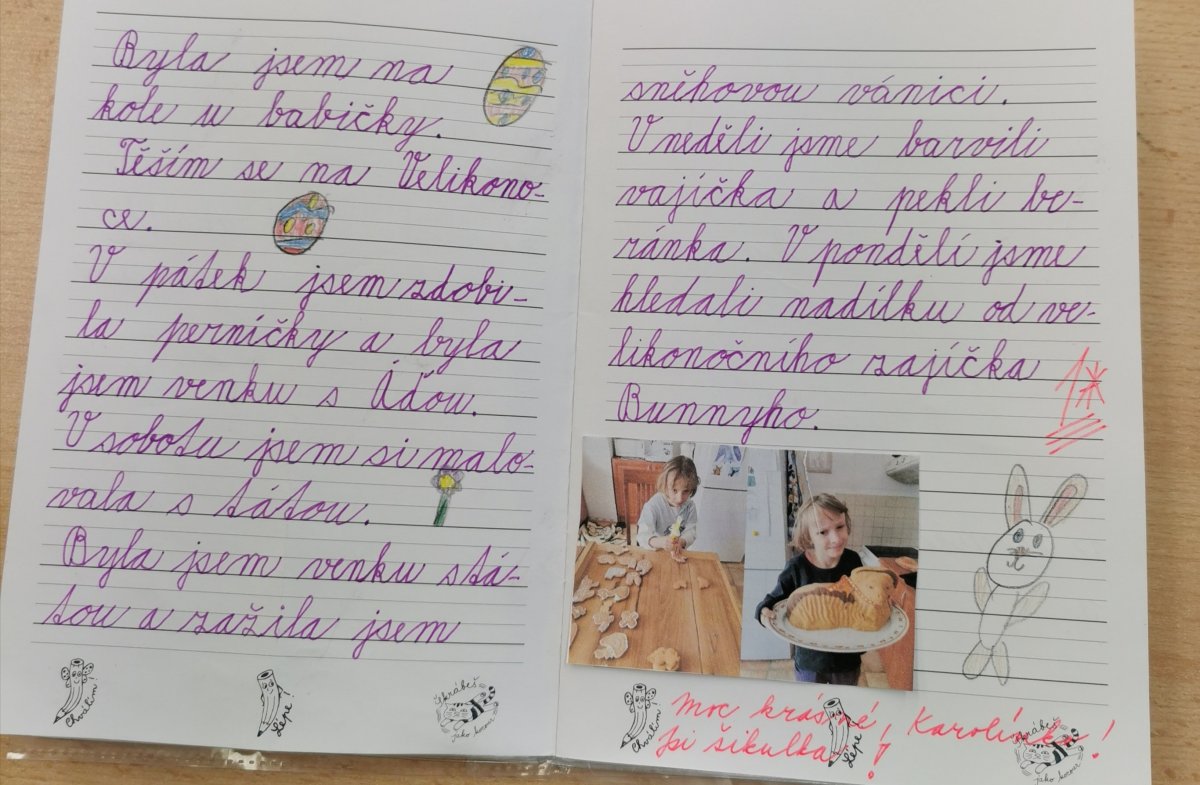 Byla jsem na
kole u babičky.
Těším se na Velikono-
ce.
V pátek jsem zdobi-
la perníčky a byla
jsem venku s Áďou.
V sobotu jsem si malo-
vala s tátou.
Byla jsem venku s tá-
tou a zažila jsem
Chválím!
Lépe!
Škrábeš
jako kocour
sněhovou vánici.
V neděli jsme barvili
vajíčka a pekli be-
ránka. V pondělí jsme
hledali nadílku od ve-
likonočního zajíčka
Bunnyho.
1*
Moc krásné, Karolínko!
Jsi šikulka!
Chválím!
Lépe!
Škrábeš
jako kocour